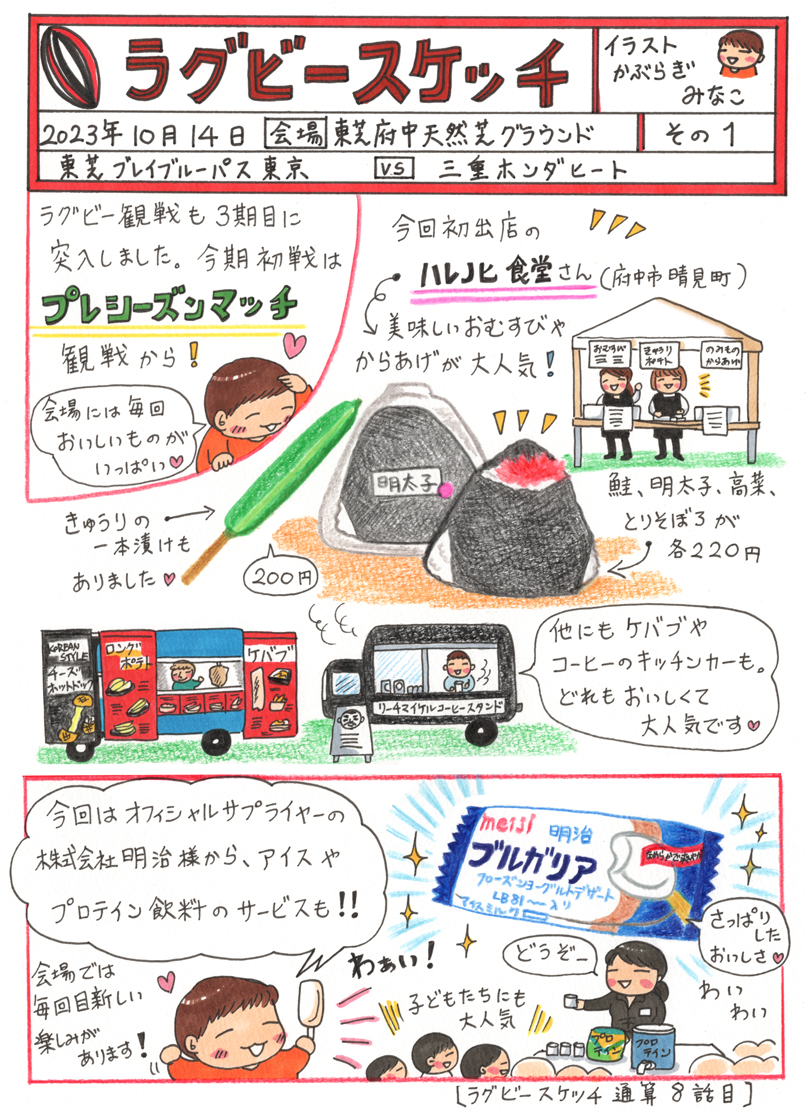 ラグビースケッチ
イラスト
かぶらぎ
みなこ
2023年10月14日 会場 東芝府中天然芝グラウンド
その1
東芝ブレイブルーパス東京 VS 三重ホンダヒート
ラグビー観戦も3期目に
突入しました。今期初戦は
プレシーズンマッチ
観戦から!
会場には毎回
おいしいものが
いっぱい♥
今回初出店の
ハレノヒ食堂さん(府中市晴見町)
美味しいおむすびや
からあげが大人気!
おむすび
きゅうり
ポテト
のみもの
からあげ
明太子
鮭、明太子、高菜、
とりそぼろが
各220円
きゅうりの
一本漬けも
ありました♥
200円
KOREAN
STYLE
チーズ
ホットドック
ロング
ポテト
ケバブ
リーチマイケルコーヒースタンド
他にもケバブや
コーヒーのキッチンカーも。
どれもおいしくて
大人気です♥
今回はオフィシャルサプライヤーの
株式会社明治様から、アイスや
プロテイン飲料のサービスも!!
meiji 明治
ブルガリア
フローズンヨーグルトデザート
LB81
アイスミルク
さっぱり
した
おいしさ♥
会場では
毎回目新しい
楽しみが
あります!
わぁい!
子どもたちにも
大人気
どうぞー
わい
わい
プロ
テイン
プロ
テイン
[ラグビースケッチ通算8話目]